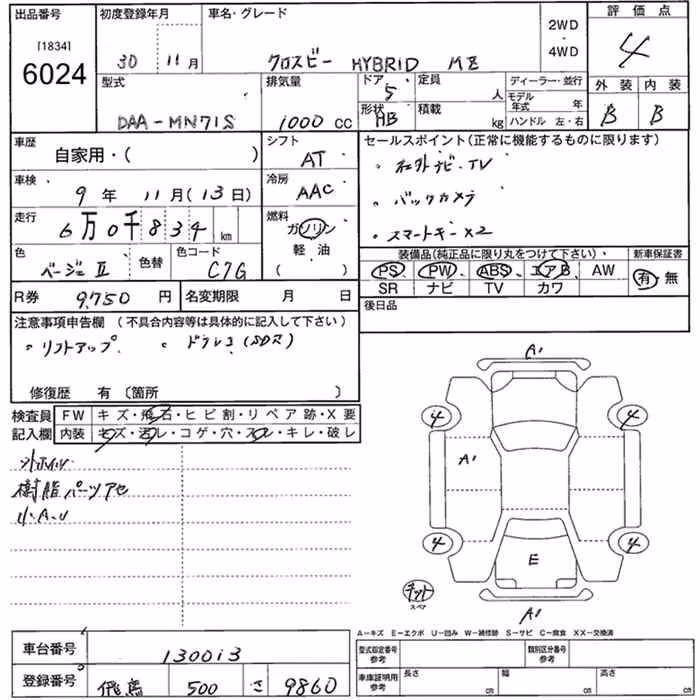 出品番号 初度登録年月 車名・グレード 2WD ・ 4WD 評価点
[1834] 6024 30 11月 クロスビー HYBRID MZ 4
型式 排気量 ドア 5 定員 人 ディーラー・並行 モデル年式 年 外装 内装
DAA-MN71S 1000 CC 形状 HB 積載 kg ハンドル 左・右 B B
車歴 自家用・( ) シフト AT セールスポイント(正常に機能するものに限ります)
社外ナビ・TV
車検 9年 11月(13日) 冷房 AAC
バックカメラ
走行 6万0千834 km 燃料 ガソリン 軽油 ( )
スマートキー×2
色 ベージュⅡ 色替 色コード C7G
装備品(純正品に限り丸をつけて下さい)・ 新車保証書
PS PW ABS エアB AW 有・無
SR ナビ TV カワ
R券 9,750円 名変期限 月 日 後日品
注意事項申告欄 (不具合内容等は具体的に記入して下さい)
リフトアップ ドラレコ(SDス)
修復歴 有(箇所 )
検査員記入欄 FW キズ・飛石・ヒビ割・リペア跡・X要
内装 キズ・汚レ・コゲ・穴・スレ・キレ・破レ
樹脂パーツアセ
小A.U
A1
4 4
A1
4 4
E
キット
スペア
A1
A-キズ E-エクボ U-凹み W-補修跡 S-サビ C-腐食 XX-交換済
車台番号 130013 型式指定番号 参考 類別区分番号 参考
登録番号 飛鳥 500 さ 9860 車庫証明用 参考 長さ cm 幅 cm 高さ cm